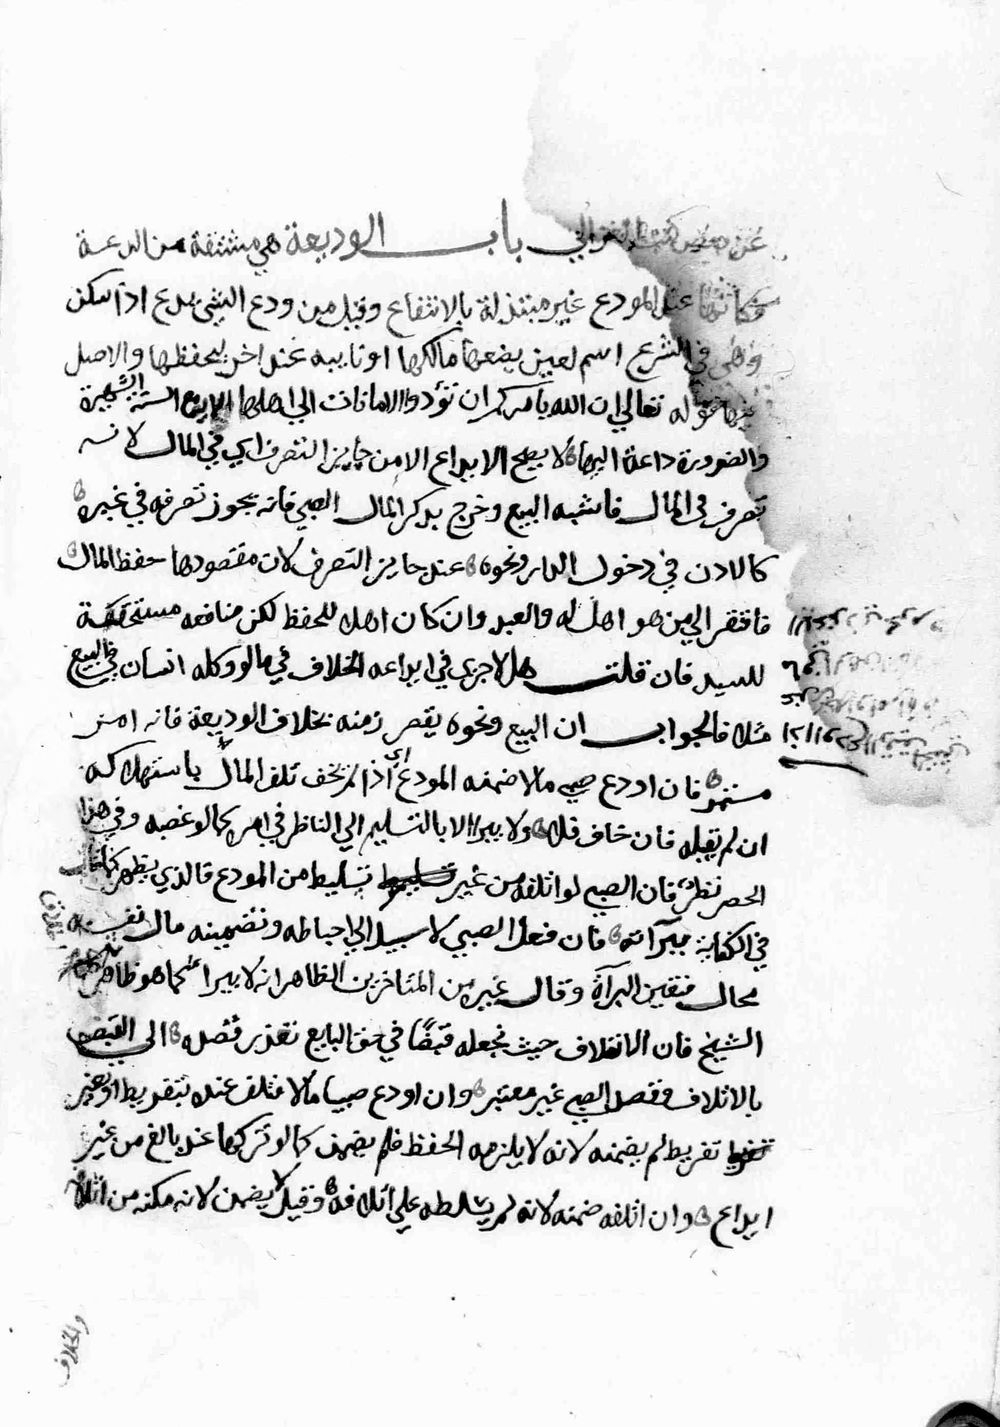 عن بعض كتب الغزالي باب الوديعة هي مشتقة من الدعة
وكانها عند المودع غير مبتذلة بالانتفاع وقيل من ودع الشي يدع اذا سكن
وهي في الشرع اسم لعين يضعها مالكها او نايبه عند اخر ليحفظها والاصل
فيها قوله تعالى ان الله يامركم ان تؤدوا الامانات الي اهلها الشهيرة
والضرورة داعية اليها لا يصح الايداع الا من جايز التصرف اي في المال لانه
تصرف في المال فاشبه البيع وخرج بذكر المال الصبي فانه يجوز تصرفه في غيره
كالاذن في دخول الدار ونحوه عند جايز التصرف لان مقصودها حفظ المال
فافتقر الي من هو اهل له والعبد وان كان اهلا للحفظ لكن منافعه مستحقة
للسيد فان قلت هلا جري في ايداعه الخلاف في ما لو وكله انسان في البيع
مثلا فالجواب ان البيع ونحوه يقصر زمنه بخلاف الوديعة فانه امر
مستمر فان اودع صبي مالا ضمنه المودع اي اذا لم يخف تلف المال باستهلاكه
ان لم يقبله فان خاف فلا ولا يبرا الا بالتسليم الي الناظر في امره كما لو غصبه وفي هذا
الحصر نظر فان الصبي لو اتلفه من غير تسليط من المودع فالذي يظهر كما قال
في الكفاية براته فان فعل الصبي لا سبيل الي احباطه وتضمينه مال نفسه
محال فتعين البرآة وقال غيره من المتاخرين الظاهر انه لا يبرا كما هو ظاهر
الشيخ فان الاتلاف حيث نجعله قبضا في حق البايع نقدر قصده الي القبض
بالاتلاف وقصد الصبي غير معتبر وان اودع صبيا مالا فتلف عنده بتفريط او بغير
تفريط لم يضمنه لانه لا يلزمه الحفظ فلم يضمن كما لو تركها عند بالغ من غير
ايداع وان اتلفه ضمنه لانه لم يسلطه علي اتلافه وقيل لا يضمن لانه مكنه من اتلافه
والخلاف